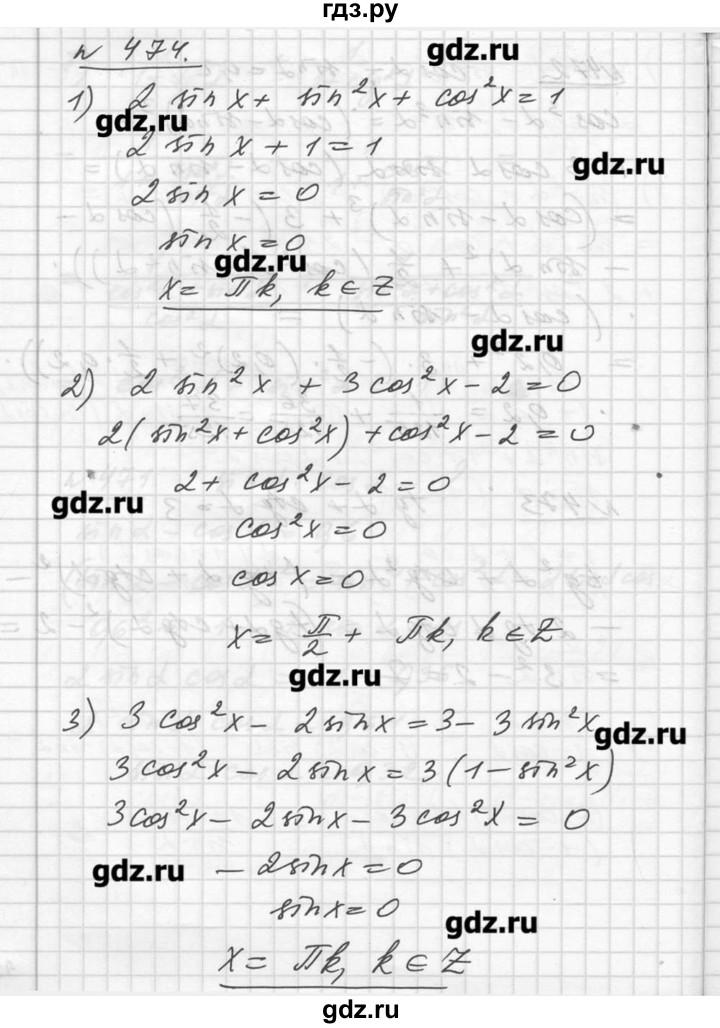 гдз.ру
№ 474.
gdz.ru
1) 2 sin x + sin²x + cos²x = 1
gdz.ru
2 sin x + 1 = 1
gdz.ru
2 sin x = 0
sin x = 0
gdz.ru
x = πk, k ∈ Z
gdz.ru
2) 2 sin²x + 3 cos²x - 2 = 0
2(sin²x + cos²x) + cos²x - 2 = 0
2 + cos²x - 2 = 0
gdz.ru
cos²x = 0
cos x = 0
x = π/2 + πk, k ∈ Z
gdz.ru
3) 3 cos²x - 2 sin x = 3 - 3 sin²x
gdz.ru
3 cos²x - 2 sin x = 3(1 - sin²x)
3 cos²x - 2 sin x - 3 cos²x = 0
gdz.ru
- 2 sin x = 0
sin x = 0
gdz.ru
x = πk, k ∈ Z
gdz.ru